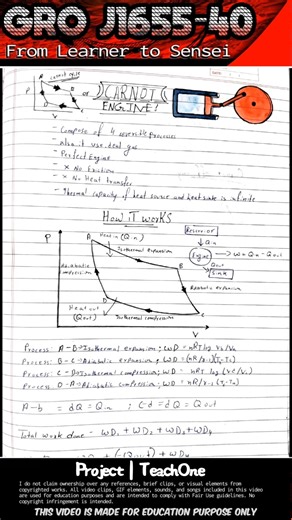 GRO J1655-40
From Learner to Sensei
Carnot cycle
P
V
or
CARNOT
ENGINE!
- Compose of 4 reversible processes
- Also it use ideal gas
- Perfect Engine
- × No friction
- × No Heat transfer
- Thermal capacity of heat source and heat sink is infinite
HOW IT WORKS
P
A
Heat in (Qin)
Isothermal expansion
Adiabatic compression
B
D
Heat out (Qout)
Isothermal compression
C
Adiabatic expansion
V
Reservoir
Qin
Engine
W = Qin - Qout
Qout
Sink
Process A-B → Isothermal expansion; WD = nRT log
Process: B-C → Adiabatic expansion; WD =
Process: C-D → Isothermal compression; WD = nRT log
Process D-A → Adiabatic compression;
A-b = dQ = Qin ; C-d = dQ = Qout
Total work done = WD1 + WD2 + WD3 + WD4
Project | TeachOne
I do not claim ownership over any references, brief clips, or visual elements from
copyrighted works. All video clips, GIF elements, sounds, and songs included in this video
are used for education purposes and are intended to comply with Fair Use guidelines. No
copyright infringement is intended.
THIS VIDEO IS MADE FOR EDUCATION PURPOSE ONLY